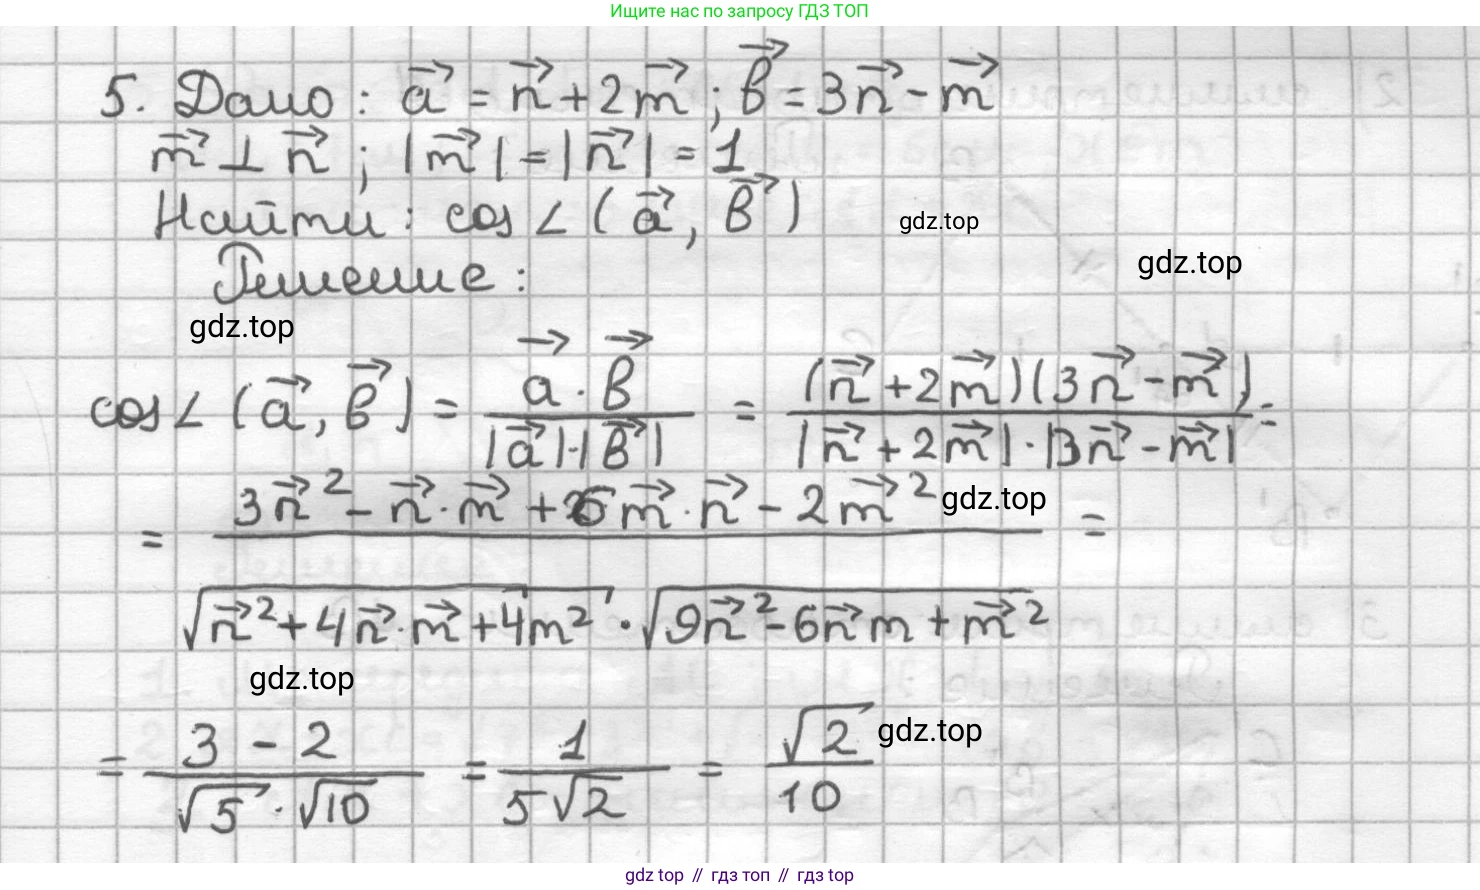 Ищите нас по запросу ГДЗ ТОП
5. Дано: a⃗ = n⃗ + 2m⃗; b⃗ = 3n⃗ - m⃗
m⃗ ⊥ n⃗; |m⃗| = |n⃗| = 1
Найти: cos∠(a⃗, b⃗)
gdz.top
Решение:
gdz.top
gdz.top
cos∠(a⃗, b⃗) = (a⃗·b⃗)/(|a⃗|·|b⃗|) = ((n⃗ + 2m⃗)(3n⃗ - m⃗))/(|n⃗ + 2m⃗|·|3n⃗ - m⃗|) =
= (3n⃗² - n⃗·m⃗ + 6m⃗·n⃗ - 2m⃗²)/(√(n⃗² + 4n⃗·m⃗ + 4m²)·√(9n⃗² - 6n⃗m + m⃗²)) =
gdz.top
gdz.top
= (3 - 2)/(√5·√10) = 1/(5√2) = √2/10
gdz.top
gdz top // гдз топ // гдз top